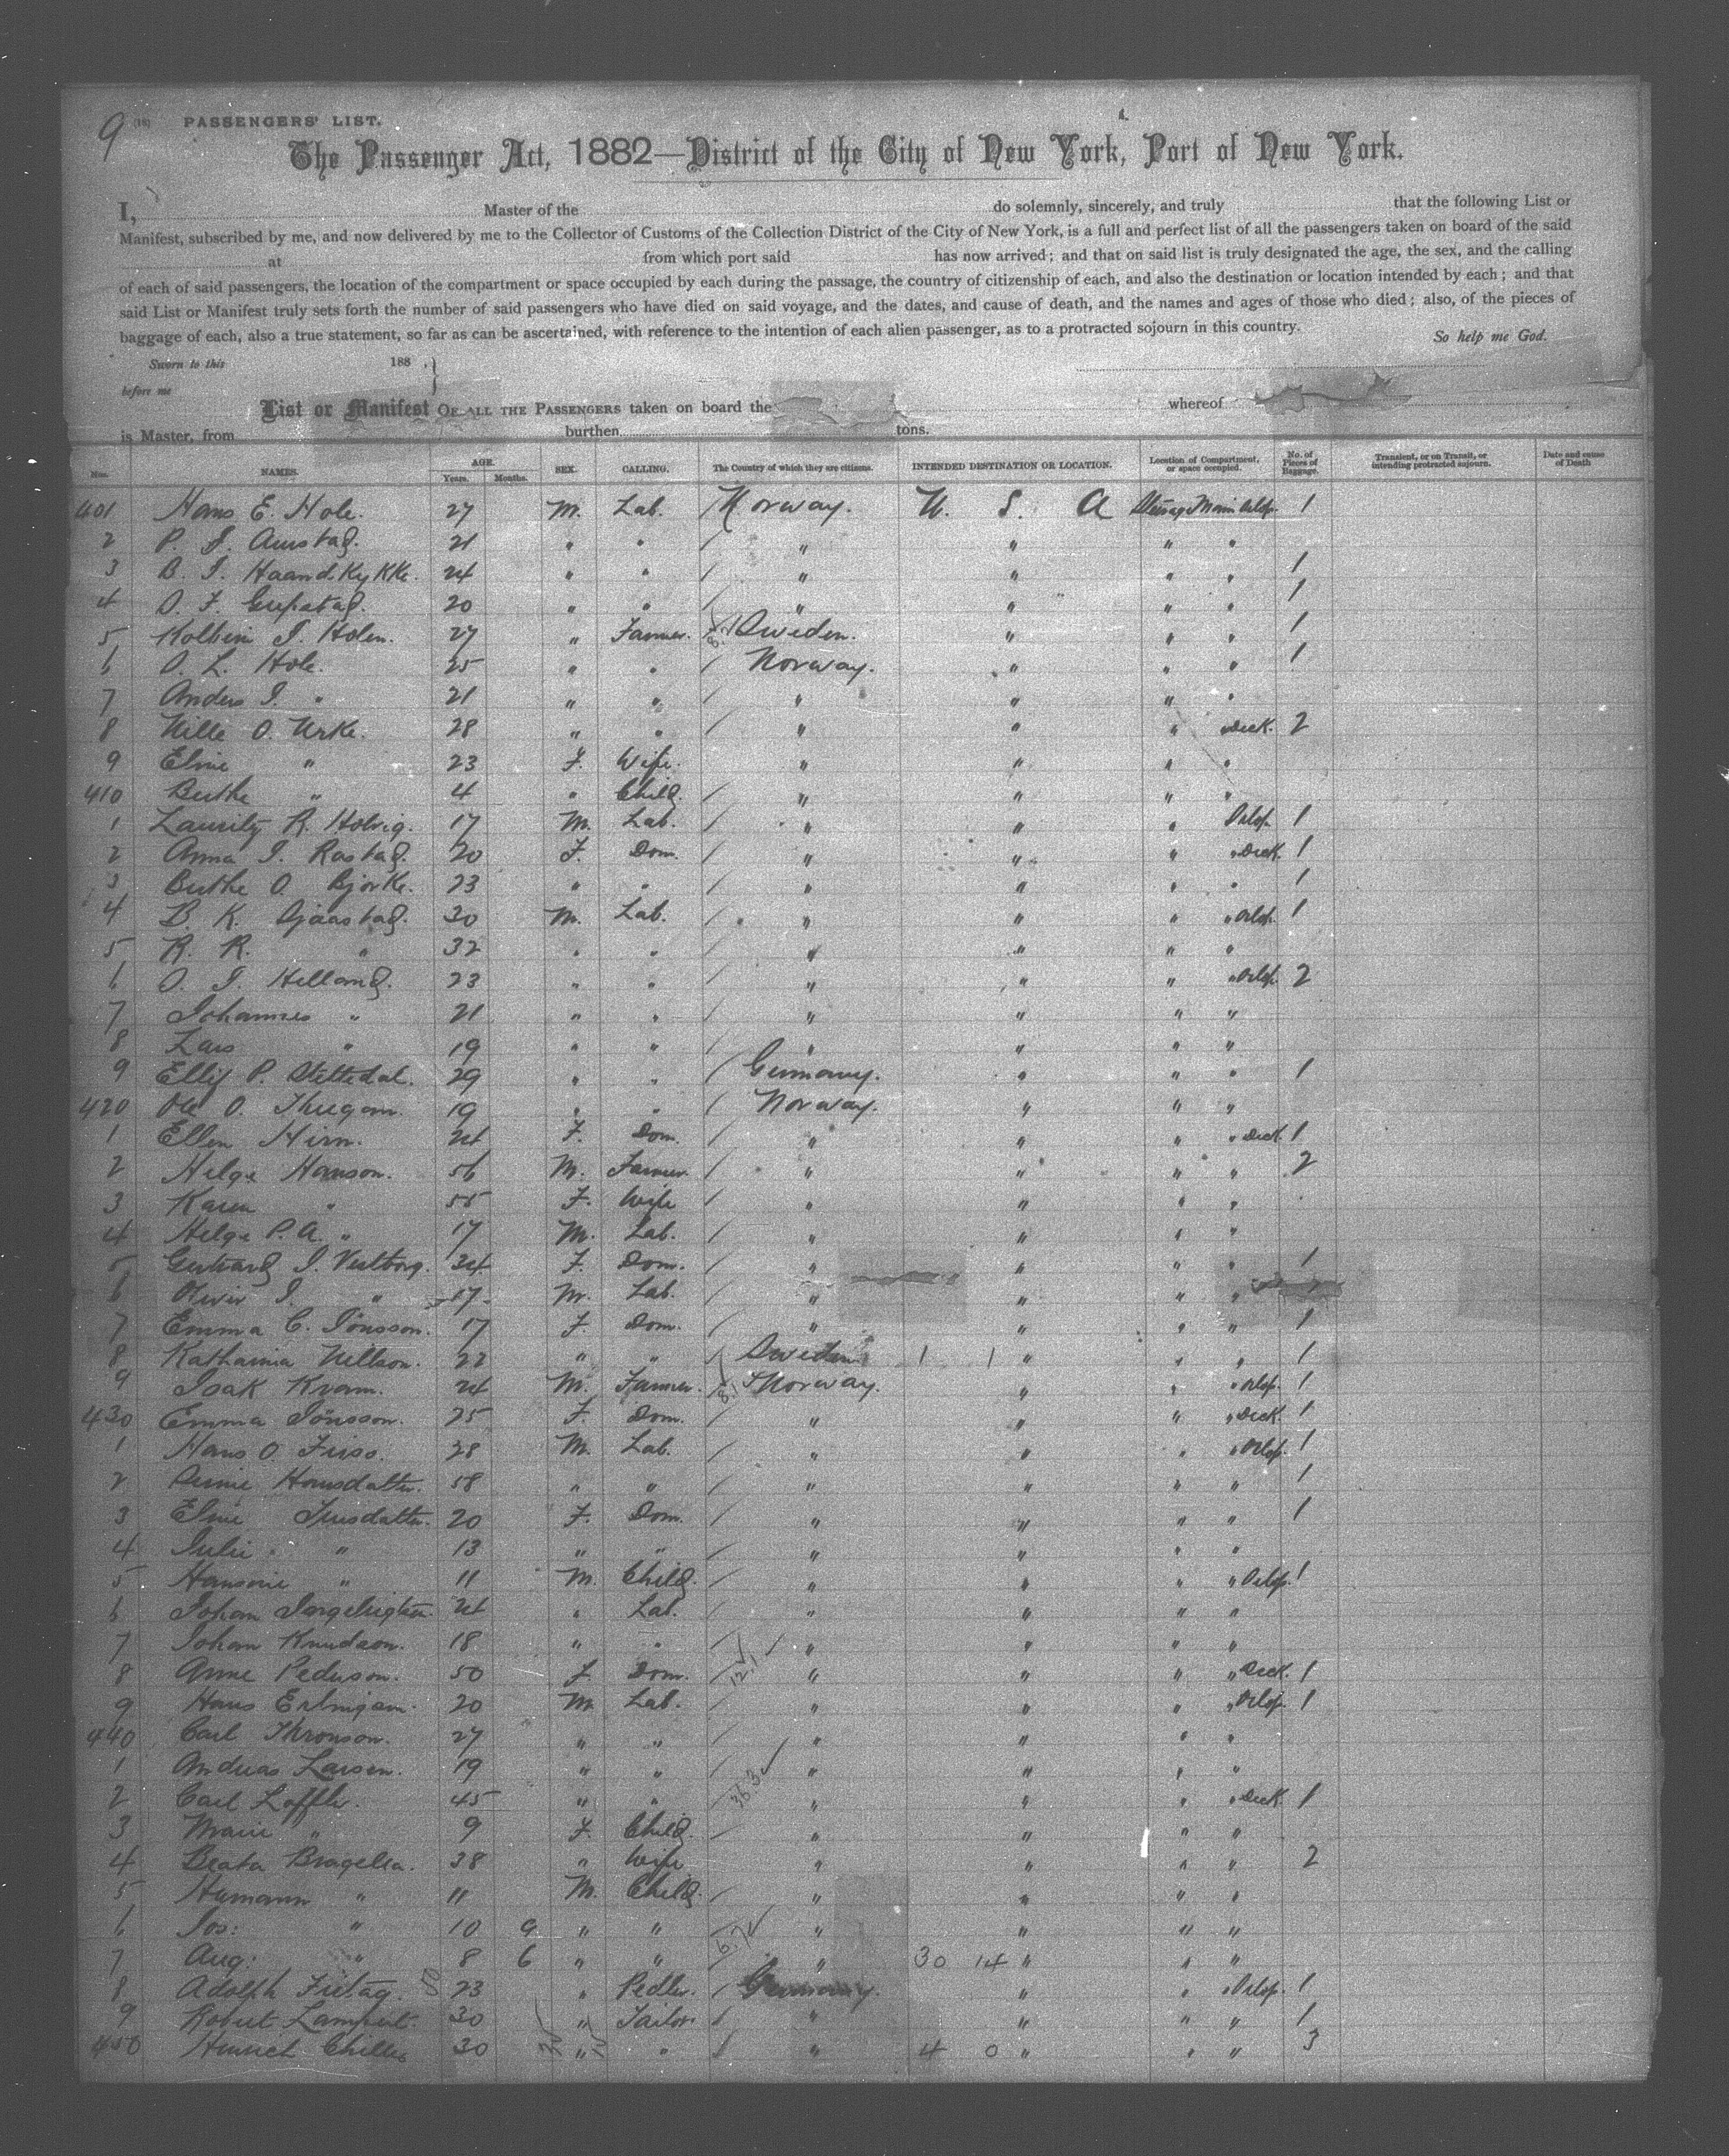 9 (18) PASSENGERS' LIST.
The Passenger Act, 1882—District of the City of New York, Port of New York.
I, Master of the do solemnly, sincerely, and truly that the following List or
Manifest, subscribed by me, and now delivered by me to the Collector of Customs of the Collection District of the City of New York, is a full and perfect list of all the passengers taken on board of the said
at from which port said has now arrived; and that on said list is truly designated the age, the sex, and the calling
of each of said passengers, the location of the compartment or space occupied by each during the passage, the country of citizenship of each, and also the destination or location intended by each; and that
said List or Manifest truly sets forth the number of said passengers who have died on said voyage, and the dates, and cause of death, and the names and ages of those who died; also, of the pieces of
baggage of each, also a true statement, so far as can be ascertained, with reference to the intention of each alien passenger, as to a protracted sojourn in this country. So help me God.
Sworn to this 188 .
before me
List or Manifest OF ALL THE PASSENGERS taken on board the whereof
is Master, from burthen tons.
Nos. NAMES. AGE. Years. Months. SEX. CALLING. The Country of which they are citizens. INTENDED DESTINATION OR LOCATION. Location of Compartment, or space occupied. No. of Pieces of Baggage. Transient, or on Transit, or intending protracted sojourn. Date and cause of Death
401 Hans E. Hole. 27 M. Lab. Norway. U. S. A Main Orlop. 1
2 P. 21 " " " " " "
3 B. I. 24 " " " " " " 1
4 O. 20 " " " " " " 1
5 I. Holen. 27 " Farmer. Sweden. " " " 1
6 O. L. Hole. 25 " " Norway. " " " 1
7 Anders I. " 21 " " " " " "
8 Nille O. Urke. 28 " " " " " " Deck. 2
9 Eline " 23 F. Wife. " " " "
410 Berthe " 4 " Child. " " " "
1 Lauritz R. 17 M. Lab. " " " Orlop. 1
2 Anna I. 20 F. Dom. " " " " Deck. 1
3 Berthe O. Bjorke. 23 " " " " " " 1
4 B. K. 30 M. Lab. " " " " Orlop. 1
5 R. R. " 32 " " " " " "
6 O. I. Helland. 23 " " " " " " Orlop. 2
7 Johannes " 21 " " " " " "
8 Lars " 19 " " " " " "
9 P. 29 " " Germany. " " " 1
420 Ole O. 19 " " Norway. " " "
1 Ellen 24 F. Dom. " " " " Deck. 1
2 Helge Hanson. 56 M. Farmer. " " " " 2
3 Karen " 55 F. Wife " " " "
4 Helge P. A. " 17 M. Lab. " " " "
5 I. 34 F. Dom. " " " " 1
6 I. " 17 M. Lab. " " " "
7 Emma C. Jönsson. 17 F. Dom. " " " " 1
8 Katharina Nilson. 22 " " Sweden 1 1 " " " 1
9 Isak Kvam. 24 M. Farmer. 8.1 Norway. " " " Orlop. 1
430 Emma Jönsson. 25 F. Dom. " " " " Deck. 1
1 Hans O. 28 M. Lab. " " " " Orlop. 1
2 Hansdatter. 58 " " " " " " 1
3 Eline 20 F. Dom. " " " " 1
4 Julie " 13 " " " " " "
5 " 11 M. Child. " " " " Orlop. 1
6 Johan 24 " Lab. " " " "
7 Johan Knudson. 18 " " " " " "
8 Anne Pederson. 50 F. Dom. 12.1 " " " " Deck. 1
9 Hans 20 M. Lab. " " " " Orlop. 1
440 Carl Thronson. 27 " " " " " "
1 Andreas Larsen. 19 " " " " " "
2 Carl Loffler. 45 " " 36.3 " " " " Deck 1
3 Marie " 9 F. Child. " " " "
4 Beata 38 " Wife " " " " 2
5 Hermann " 11 M. Child. " " " "
6 Jos: " 10 9 " " " " " "
7 Aug: " 8 6 " " " 30 14 " " "
8 Adolph 23 " Pedler. Germany. " " " Orlop. 1
9 Robert 30 " Tailor " " " " 1
450 30 " " " 4 0 " " " 3